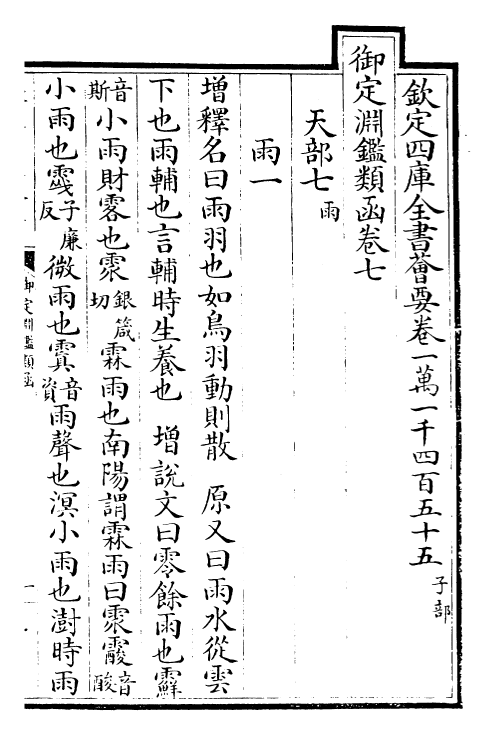 欽定四庫全書薈要卷一萬一千四百五十五 子部
御定淵鑑類函卷七
天部七 雨
雨一
增釋名曰雨羽也如鳥羽動則散 原又曰雨水從雲
下也雨輔也言輔時生養也 增說文曰零餘雨也霹
音斯小雨財零也霃銀箴切霖雨也南陽謂霖雨曰霃霰音酸
小雨也霋子廉反微雨也霣音資雨聲也溟小雨也澍時雨
御定淵鑑類函
一